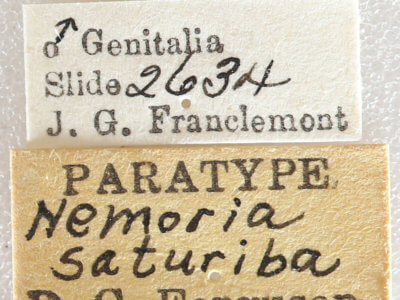 ♂ Genitalia
Slide 2634
J. G. Franclemont
PARATYPE
Nemoria
saturiba
D. C. Ferguson